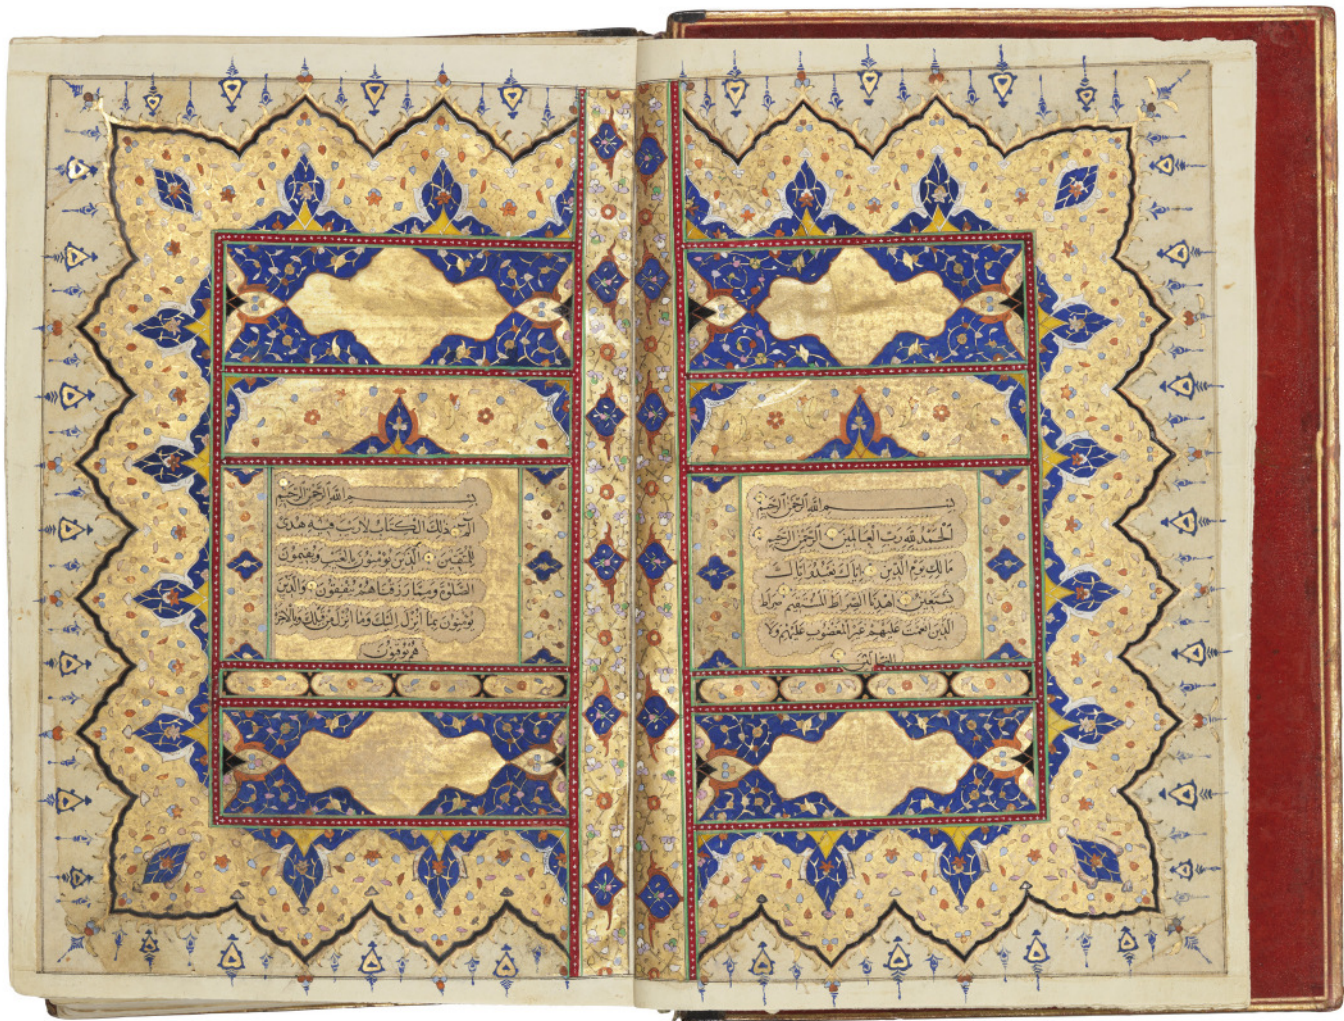 بسم الله الرحمن الرحيم
الحمد لله رب العالمين الرحمن الرحيم
مالك يوم الدين اياك نعبد واياك
نستعين اهدنا الصراط المستقيم صراط
الذين انعمت عليهم غير المغضوب عليهم ولا
الضالين
بسم الله الرحمن الرحيم
الم ذلك الكتاب لا ريب فيه هدى
للمتقين الذين يؤمنون بالغيب ويقيمون
الصلوة ومما رزقناهم ينفقون والذين
يؤمنون بما انزل اليك وما انزل من قبلك وبالاخرة
هم يوقنون